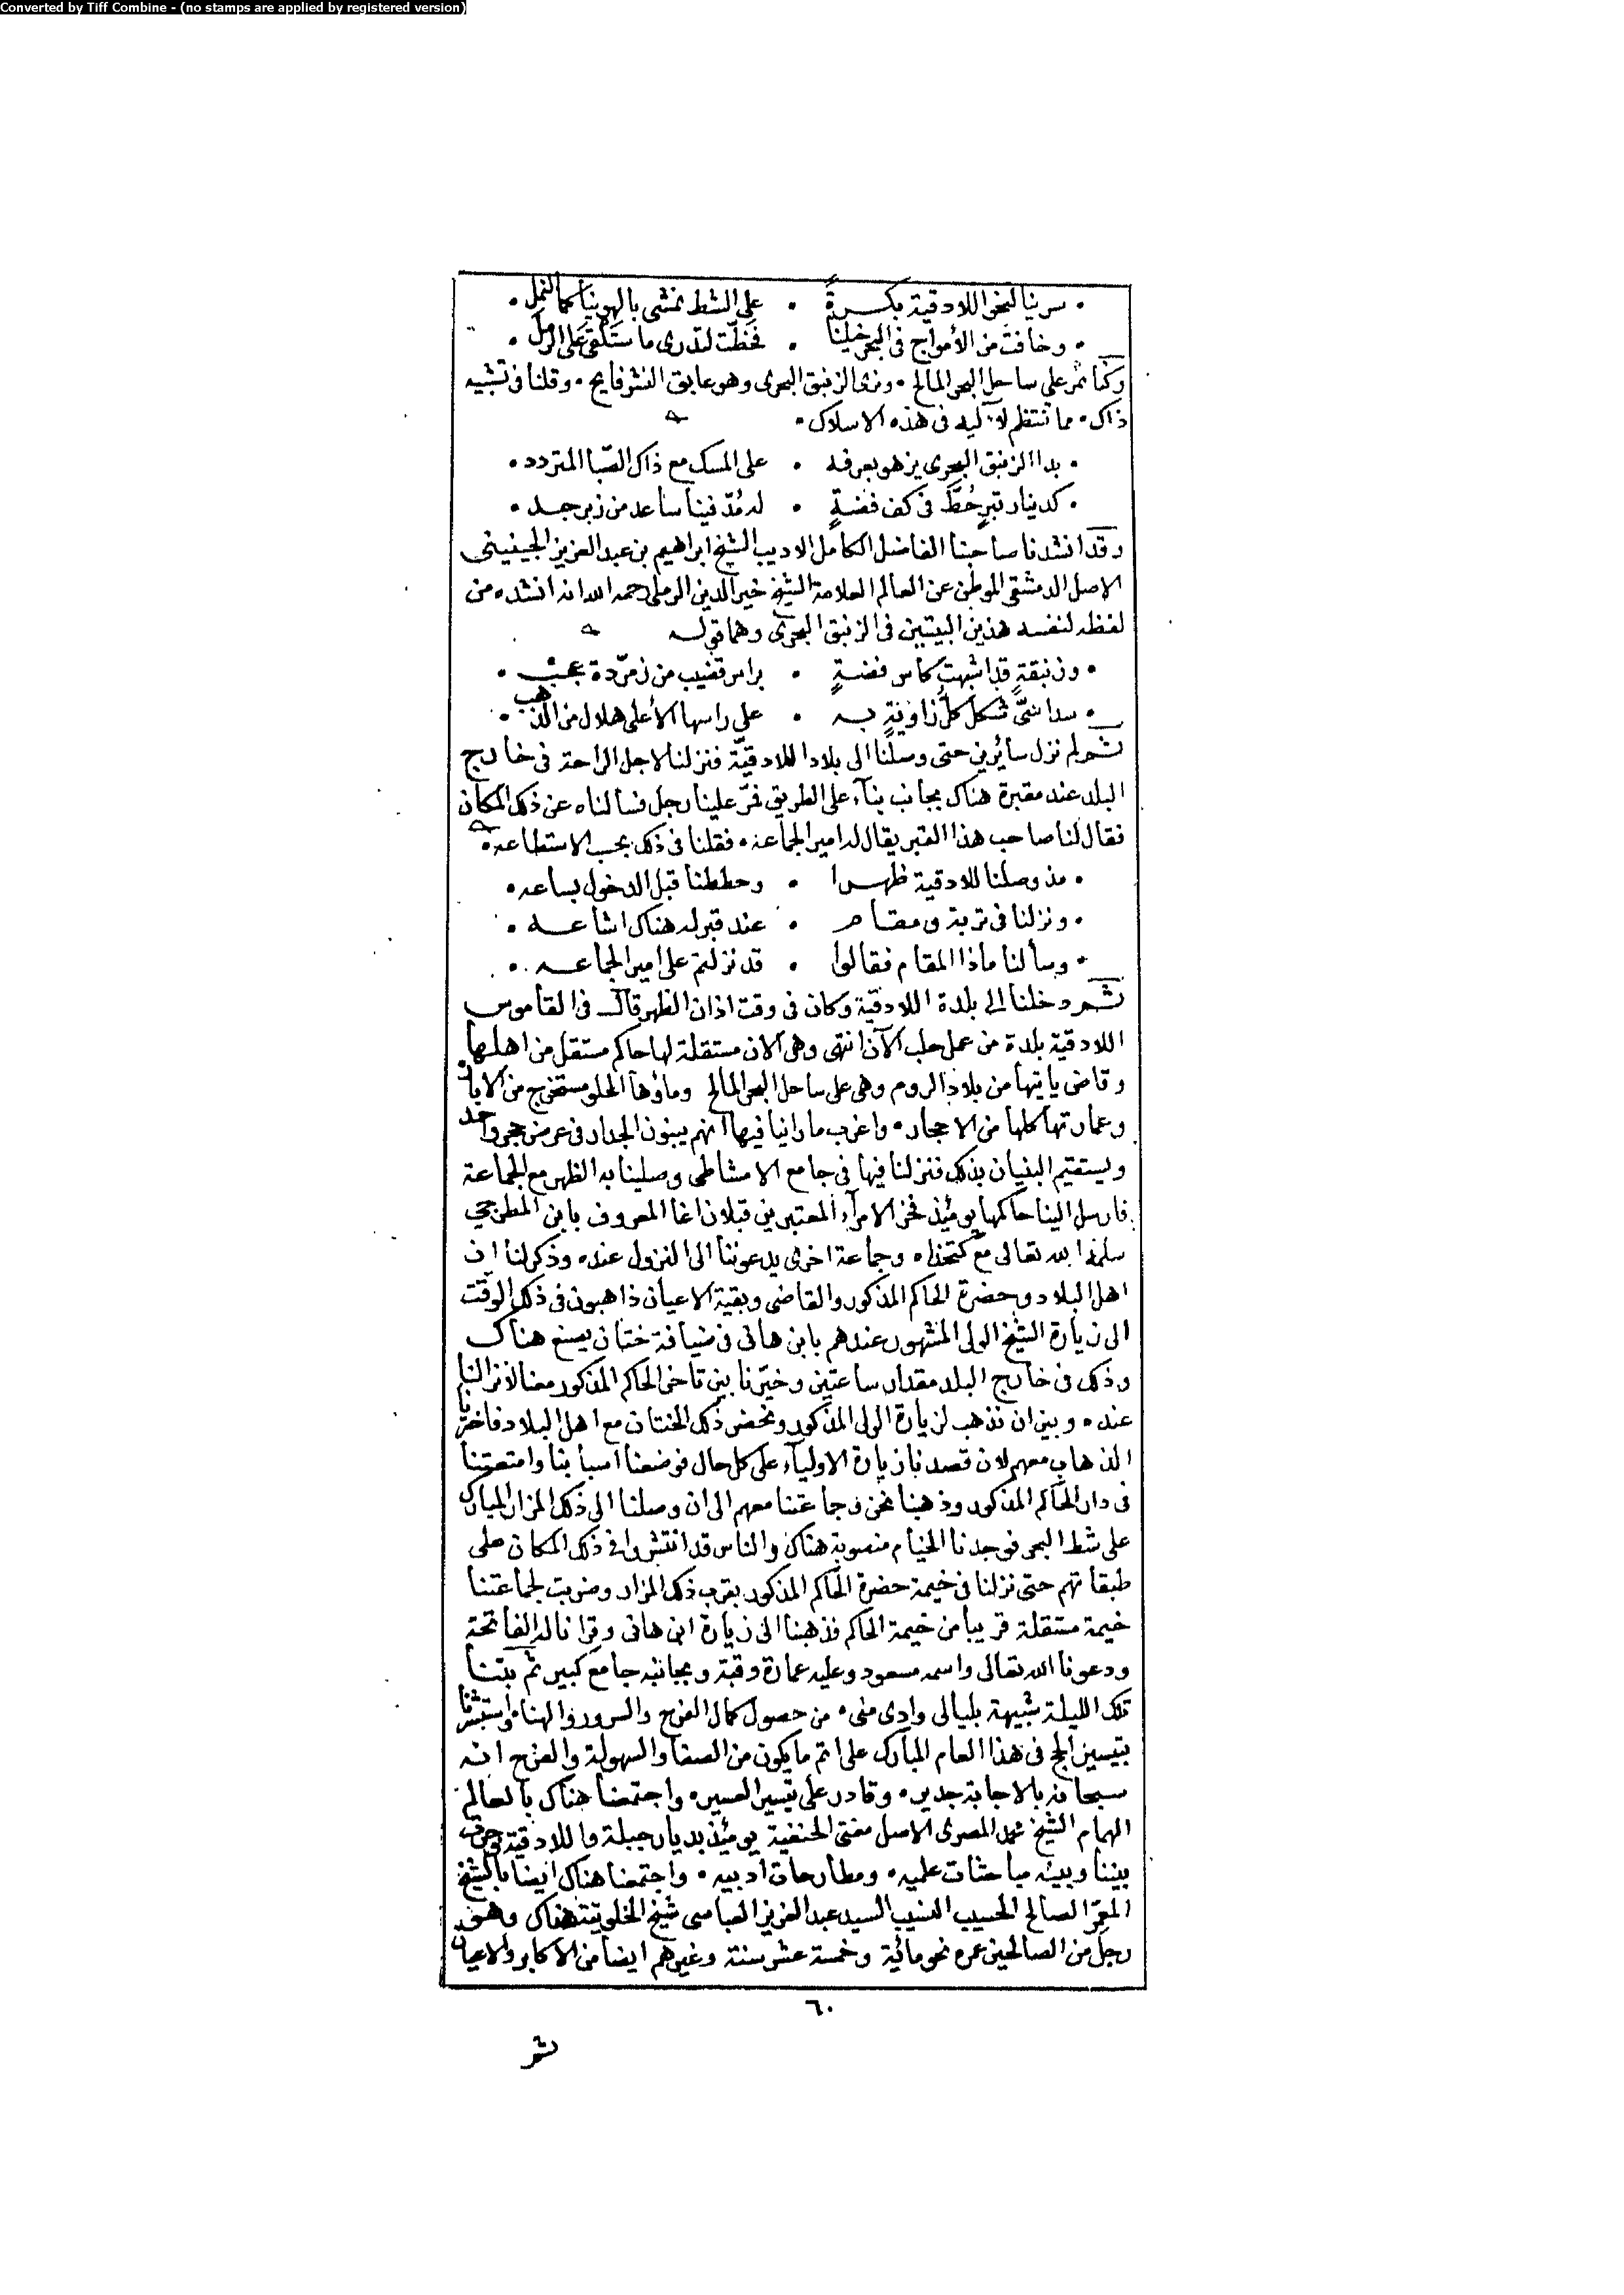 Converted by Tiff Combine - (no stamps are applied by registered version)
• سرينا لنحو اللادقية بكرةً • على الشط نمشى بالهوينا كما النمل •
• وخافت من الأمواج فى البحر خيلنا • فخطّت لتدرى ما ستلقى على الرمل •
وكنا نمر على ساحل البحر المالح • ونرى الزنبق البحرى وهو عابق النشر فايح • وقلنا فى تشبيه
ذاك • مما تنتظم لآليه فى هذه الاسلاك •
• بدا الزنبق البحرى يزهو بعرفه • على المسك مع ذاك الصّبا المتردد •
• كدينار تبرٍ حُطَّ فى كف فضةٍ • له مُدّ فينا ساعد من زبرجد •
وقد انشدنا صاحبنا الفاضل الكامل الاديب الشيخ ابراهيم بن عبد العزيز الجينينى
الاصل الدمشقى الموطن عن العالم العلامة الشيخ خير الدين الرملى رحمه الله انه انشده من
لفظه لنفسه هذين البيتين فى الزنبق البحرى وهما قوله
• وزنبقةٍ قد اشبهت كاس فضةٍ • براس قضيب من زمرّدة عجب •
• سداسىّ شكل كلّ زاويةٍ به • على راسها الأعلى هلال من الذهب •
ثم لم نزل سائرين حتى وصلنا الى بلاد اللادقيّة فنزلنا لاجل الراحة فى خارج
البلد عند مقبرة هناك بجانب بنآء على الطريق فمرّ علينا رجل فسألناه عن ذلك المكان
فقال لنا صاحب هذا القبر يقال له امير الجماعة • فقلنا فى ذلك بحسب الاستطاعه •
• مذ وصلنا للادقية ظهرا • وحططنا قبل الدخول بساعه •
• ونزلنا فى تربة ومقام • عند قبر له هناك اشاعه •
• وسألنا ماذا المقام فقالوا • قد نزلتم على امير الجماعه •
ثم دخلنا الى بلدة اللادقيّة وكان فى وقت اذان الظهر قال فى القاموس
اللادقية بلدة من عمل حلب الآن انتهى وهى الان مستقلة لها حاكم مستقل من اهلها
وقاض يأتيها من بلاد الروم وهى على ساحل البحر المالح وماؤها الحلو مستخرج من الابار
وعمارتها كلها من الاحجار • واغرب ما راينا فيها انهم يبنون الجدار فى عرض حجر واحد
ويستقيم البنيان بذلك فنزلنا فيها فى جامع الامشاطى وصلينا به الظهر مع الجماعة
فارسل الينا حاكمها يومئذ فخر الامرآء المعتبرين قبلان اغا المعروف بابن المطرجى
سلمه الله تعالى مع كتخداه وجماعة اخرى يدعوننا الى النزول عنده وذكر لنا ان
اهل البلاد وحضرة الحاكم المذكور والقاضى وبقية الاعيان ذاهبون فى ذلك الوقت
الى زيارة الشيخ الولى المشهور عندهم بابن هانى فى ضيافة ختان يصنع هناك
وذلك فى خارج البلد مقدار ساعتين وخيّرنا بين تاخى الحاكم المذكور معنا لانزالنا
عنده وبين ان نذهب لزيارة الولى المذكور ونحضر ذلك الختان مع اهل البلاد فاخترنا
الذهاب معهم لان قصدنا زيارة الاوليآء على كل حال فوضعنا اسبابنا وامتعتنا
فى دار الحاكم المذكور وذهبنا نحن وجماعتنا معهم الى ان وصلنا الى ذلك المزار المبارك
على شط البحر فوجدنا الخيام منصوبة هناك والناس قد انتشروا فى ذلك المكان على
طبقاتهم حتى نزلنا فى خيمة حضرة الحاكم المذكور بقرب ذلك المزار وضربت لجماعتنا
خيمة مستقلة قريبا من خيمة الحاكم فذهبنا الى زيارة ابن هانى وقرانا له الفاتحة
ودعونا الله تعالى واسمه مسعود وعليه عمارة وقبة وبجانبه جامع كبير ثم بتنا
تلك الليلة شبيهة بليالى وادى منى • من حصول كمال الفرح والسرور والهنا • واستبشرنا
بتيسير الحج فى هذا العام المبارك على اتم ما يكون من الصفا والسهولة والفرح انه
سبحانه بالاجابة جدير • وقادر على تيسير العسير • واجتمعنا هناك بالعالم
الهمام الشيخ محمد المصرى الاصل مفتى الحنفية يومئذ بديار جبلة واللادقية وجرت
بيننا وبينه مباحثات علميه • ومطارحات أدبيه • واجتمعنا هناك ايضا بالشيخ
المعمّر الصالح الحسيب النسيب السيد عبد العزيز العباسى شيخ الخلوتية هناك وهو
رجل من الصالحين عمره نحو مائية وخمسة عشر سنة وغيرهم ايضا من الاكابر والاعيان
٦٠
ثم